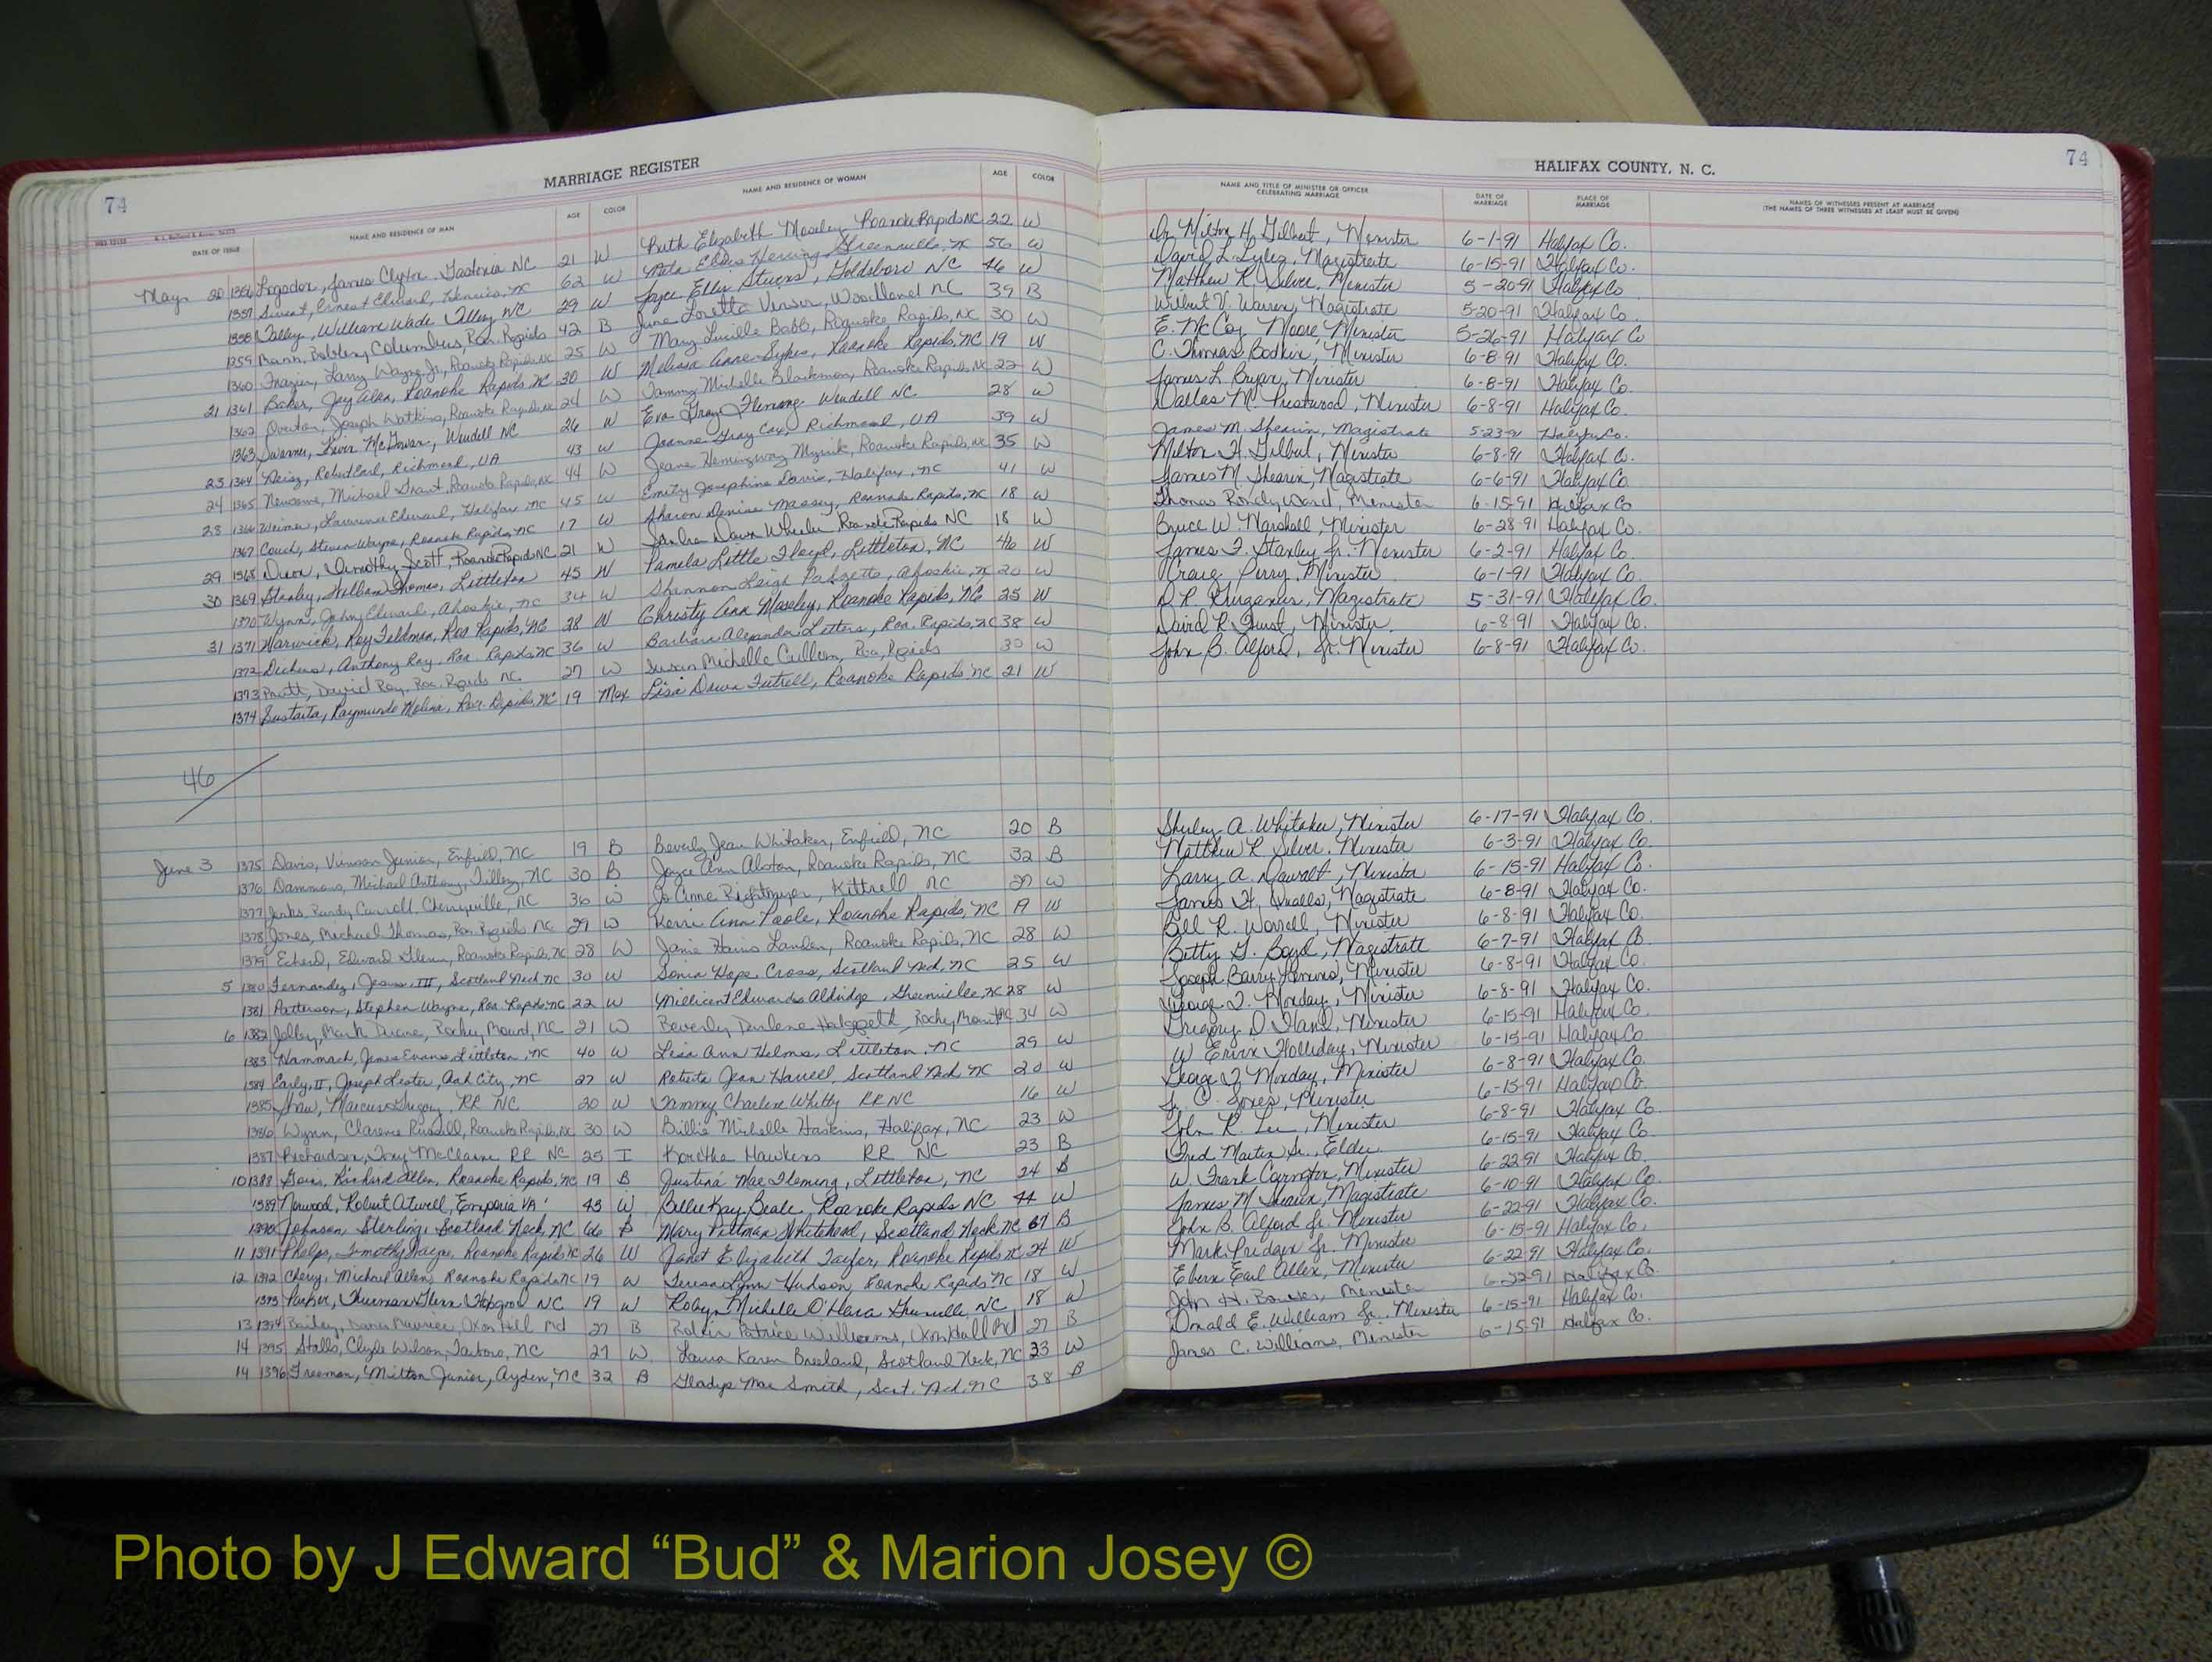 74
MARRIAGE REGISTER
DATE OF ISSUE NAME AND RESIDENCE OF MAN AGE COLOR NAME AND RESIDENCE OF WOMAN AGE COLOR
May 20 1356 James Clyton Gastonia NC 21 W Ruth Elizabeth Moseley Roanoke Rapids NC 22 W
1357 Ernest Edward, 62 W Ellis Herring Greenville, NC 56 W
1358 Talley, William Wade Tillery NC 29 W Joyce Ellis Stevens, Goldsboro NC 46 W
1359 Bobbey Columbus, Roa. Rapids 42 B June Loretta Vinson, Woodland NC 39 B
1360 Frazier, Larry Wayne Jr, Roanoke Rapids NC 25 W Mary Lucille Babb, Roanoke Rapids, NC 30 W
21 1361 Baker, Jay Alan, Roanoke Rapids NC 30 W Melissa Anne Sykes, Roanoke Rapids, NC 19 W
1362 Overton, Joseph Watkins, Roanoke Rapids NC 24 W Tammy Michelle Blackmon, Roanoke Rapids NC 22 W
1363 Kevin McGowan, Wendell NC 26 W Eva Gray Fleming Wendell NC 28 W
23 1364 Robert Earl, Richmond, VA 43 W Joanne Gray Cox, Richmond, VA 39 W
24 1365 Newsome, Michael Grant, Roanoke Rapids, NC 44 W Jeane Hemingway Myrick, Roanoke Rapids, NC 35 W
28 1366 Weimer, Lawrence Edward, Halifax, NC 45 W Emily Josephine Davis, Halifax, NC 41 W
1367 Couch, Steven Wayne, Roanoke Rapids, NC 17 W Sharon Denise Massey, Roanoke Rapids, NC 18 W
29 1368 Dixon, Timothy Scott, Roanoke Rapids NC 21 W Sandra Dawn Wheeler Roanoke Rapids NC 18 W
30 1369 Stanley, William Thomas, Littleton 45 W Pamela Little Floyd, Littleton, NC 46 W
1370 Wynn, John Edward, Ahoskie, NC 34 W Shannon Leigh Padgette, Ahoskie, NC 20 W
31 1371 Warwick, Roy Feldman, Roa Rapids, NC 28 W Christy Ann Moseley, Roanoke Rapids, NC 25 W
1372 Dickens, Anthony Ray, Roa. Rapids, NC 36 W Barbara Alexander Letters, Roa. Rapids, NC 38 W
1373 Pratt, David Ray, Roa. Rapids NC 27 W Susan Michelle Cullom, Roa. Rapids 30 W
1374 Sustaita, Raymundo Molina, Roa. Rapids, NC 19 Mex Lisa Dawn Futrell, Roanoke Rapids NC 21 W
46
June 3 1375 Davis, Vinson Junior, Enfield, NC 19 B Beverly Jean Whitaker, Enfield, NC 20 B
1376 Dammons, Michael Anthony, Tillery, NC 30 B Joyce Ann Alston, Roanoke Rapids, NC 32 B
1377 Jenks, Randy Carroll, Cherryville, NC 36 W Jo Anne Rightmyer, Kittrell, NC 27 W
1378 Jones, Michael Thomas, Roa. Rapids NC 29 W Kerri Ann Poole, Roanoke Rapids, NC 19 W
1379 Echerd, Edward Glenn, Roanoke Rapids, NC 28 W Janie Harris Landen, Roanoke Rapids, NC 28 W
5 1380 Fernandez, Jesus, III, Scotland Neck NC 30 W Sonia Hope Cross, Scotland Neck, NC 25 W
1381 Patterson, Stephen Wayne, Roa. Rapids NC 22 W Millicent Edwards Aldridge, Greenville, NC 28 W
6 1382 Jolley, Mark Duane, Rocky Mount, NC 21 W Beverly Darlene Rocky Mount NC 34 W
1383 Hammack, James Evans, Littleton, NC 40 W Lisa Ann Helms, Littleton, NC 29 W
1384 Early, II, Joseph Lester, Oak City, NC 27 W Patricia Jean Harrell, Scotland Neck NC 20 W
1385 Shaw, Marcus Gregory, RR NC 20 W Tammy Charlene Whitby RR NC 16 W
1386 Wynn, Clarence Russell, Roanoke Rapids, NC 30 W Billie Michelle Haskins, Halifax, NC 23 W
1387 Richardson, Tony McClaine RR NC 25 I Koretha Hawkins RR NC 23 B
10 1388 Richard Allen, Roanoke Rapids, NC 19 B Justina Mae Fleming, Littleton, NC 24 B
1389 Norwood, Robert Atwell, Emporia VA 43 W Billie Kay Beale, Roanoke Rapids NC 44 W
1390 Johnson, Sterling, Scotland Neck, NC 66 B Mary Pittman Whitehead, Scotland Neck NC 67 B
11 1391 Phelps, Timothy Wayne, Roanoke Rapids NC 26 W Janet Elizabeth Taylor, Roanoke Rapids NC 24 W
12 1392 Cherry, Michael Allen, Roanoke Rapids NC 19 W Teresa Lynn Hudson, Roanoke Rapids NC 18 W
1393 Parker, Thurman Glenn Hobgood NC 19 W Robyn Michelle O'Hara Greenville NC 18 W
13 1394 Bailey, Maurice, Oxon Hill Md 27 B Robin Patrice Williams, Oxon Hill Md 27 B
14 1395 Stalls, Clyde Wilson, Tarboro, NC 27 W Laura Karen Breeland, Scotland Neck, NC 23 W
14 1396 Freeman, Milton Junior, Ayden, NC 32 B Gladys Mae Smith, Scot. Neck, NC 38 B
HALIFAX COUNTY, N. C.
74
NAME AND TITLE OF MINISTER OR OFFICER CELEBRATING MARRIAGE DATE OF MARRIAGE PLACE OF MARRIAGE NAMES OF WITNESSES PRESENT AT MARRIAGE
(THE NAMES OF THREE WITNESSES AT LEAST MUST BE GIVEN)
Dr. Milton H. Gilbert, Minister 6-1-91 Halifax Co.
David L. Lyles, Magistrate 6-15-91 Halifax Co.
Matthew R. Silver, Minister 5-20-91 Halifax Co
Wilbert V. Warren, Magistrate 5-20-91 Halifax Co.
E. McCoy Moore, Minister 5-26-91 Halifax Co
C. Thomas Bodkin, Minister 6-8-91 Halifax Co.
James L. Bryan, Minister 6-8-91 Halifax Co.
Dallas M. Prestwood, Minister 6-8-91 Halifax Co.
James M. Shearin, Magistrate 5-23-91 Halifax Co.
Milton H. Gilbert, Minister 6-8-91 Halifax Co.
James M. Shearin, Magistrate 6-6-91 Halifax Co.
Thomas Rondy Ward, Minister 6-15-91 Halifax Co
Bruce W. Marshall, Minister 6-28-91 Halifax Co.
James F. Stanley Jr. Minister 6-2-91 Halifax Co.
Craig Perry, Minister 6-1-91 Halifax Co.
D. R. Magistrate 5-31-91 Halifax Co.
David R. Minister 6-8-91 Halifax Co.
John B. Alford, Jr. Minister 6-8-91 Halifax Co.
Shirley A. Whitaker, Minister 6-17-91 Halifax Co.
Matthew R Silver, Minister 6-3-91 Halifax Co.
Larry A. Dawalt, Minister 6-15-91 Halifax Co.
James H. Qualls, Magistrate 6-8-91 Halifax Co.
Bill R. Worrell, Minister 6-8-91 Halifax Co.
Betty G. Boyd, Magistrate 6-7-91 Halifax Co.
Joseph Barry Minister 6-8-91 Halifax Co.
George T. Monday, Minister 6-8-91 Halifax Co.
Gregory D. Hand, Minister 6-15-91 Halifax Co.
W Ervin Holliday, Minister 6-15-91 Halifax Co
George T. Monday, Minister 6-8-91 Halifax Co.
Jones, Minister 6-15-91 Halifax Co.
John R. Lee, Minister 6-8-91 Halifax Co.
Fred Martin Sr., Elder 6-15-91 Halifax Co.
W. Frank Carrington, Minister 6-22-91 Halifax Co.
James M Shearin, Magistrate 6-10-91 Halifax Co.
John B. Alford Jr. Minister 6-22-91 Halifax Co.
Mark Pridgen Jr. Minister 6-15-91 Halifax Co.
Ebern Earl Allen, Minister 6-22-91 Halifax Co.
John H. Minister 6-22-91 Halifax Co.
Donald E. William Jr. Minister 6-15-91 Halifax Co.
James C. Williams, Minister 6-15-91 Halifax Co.
Photo by J Edward “Bud” & Marion Josey ©